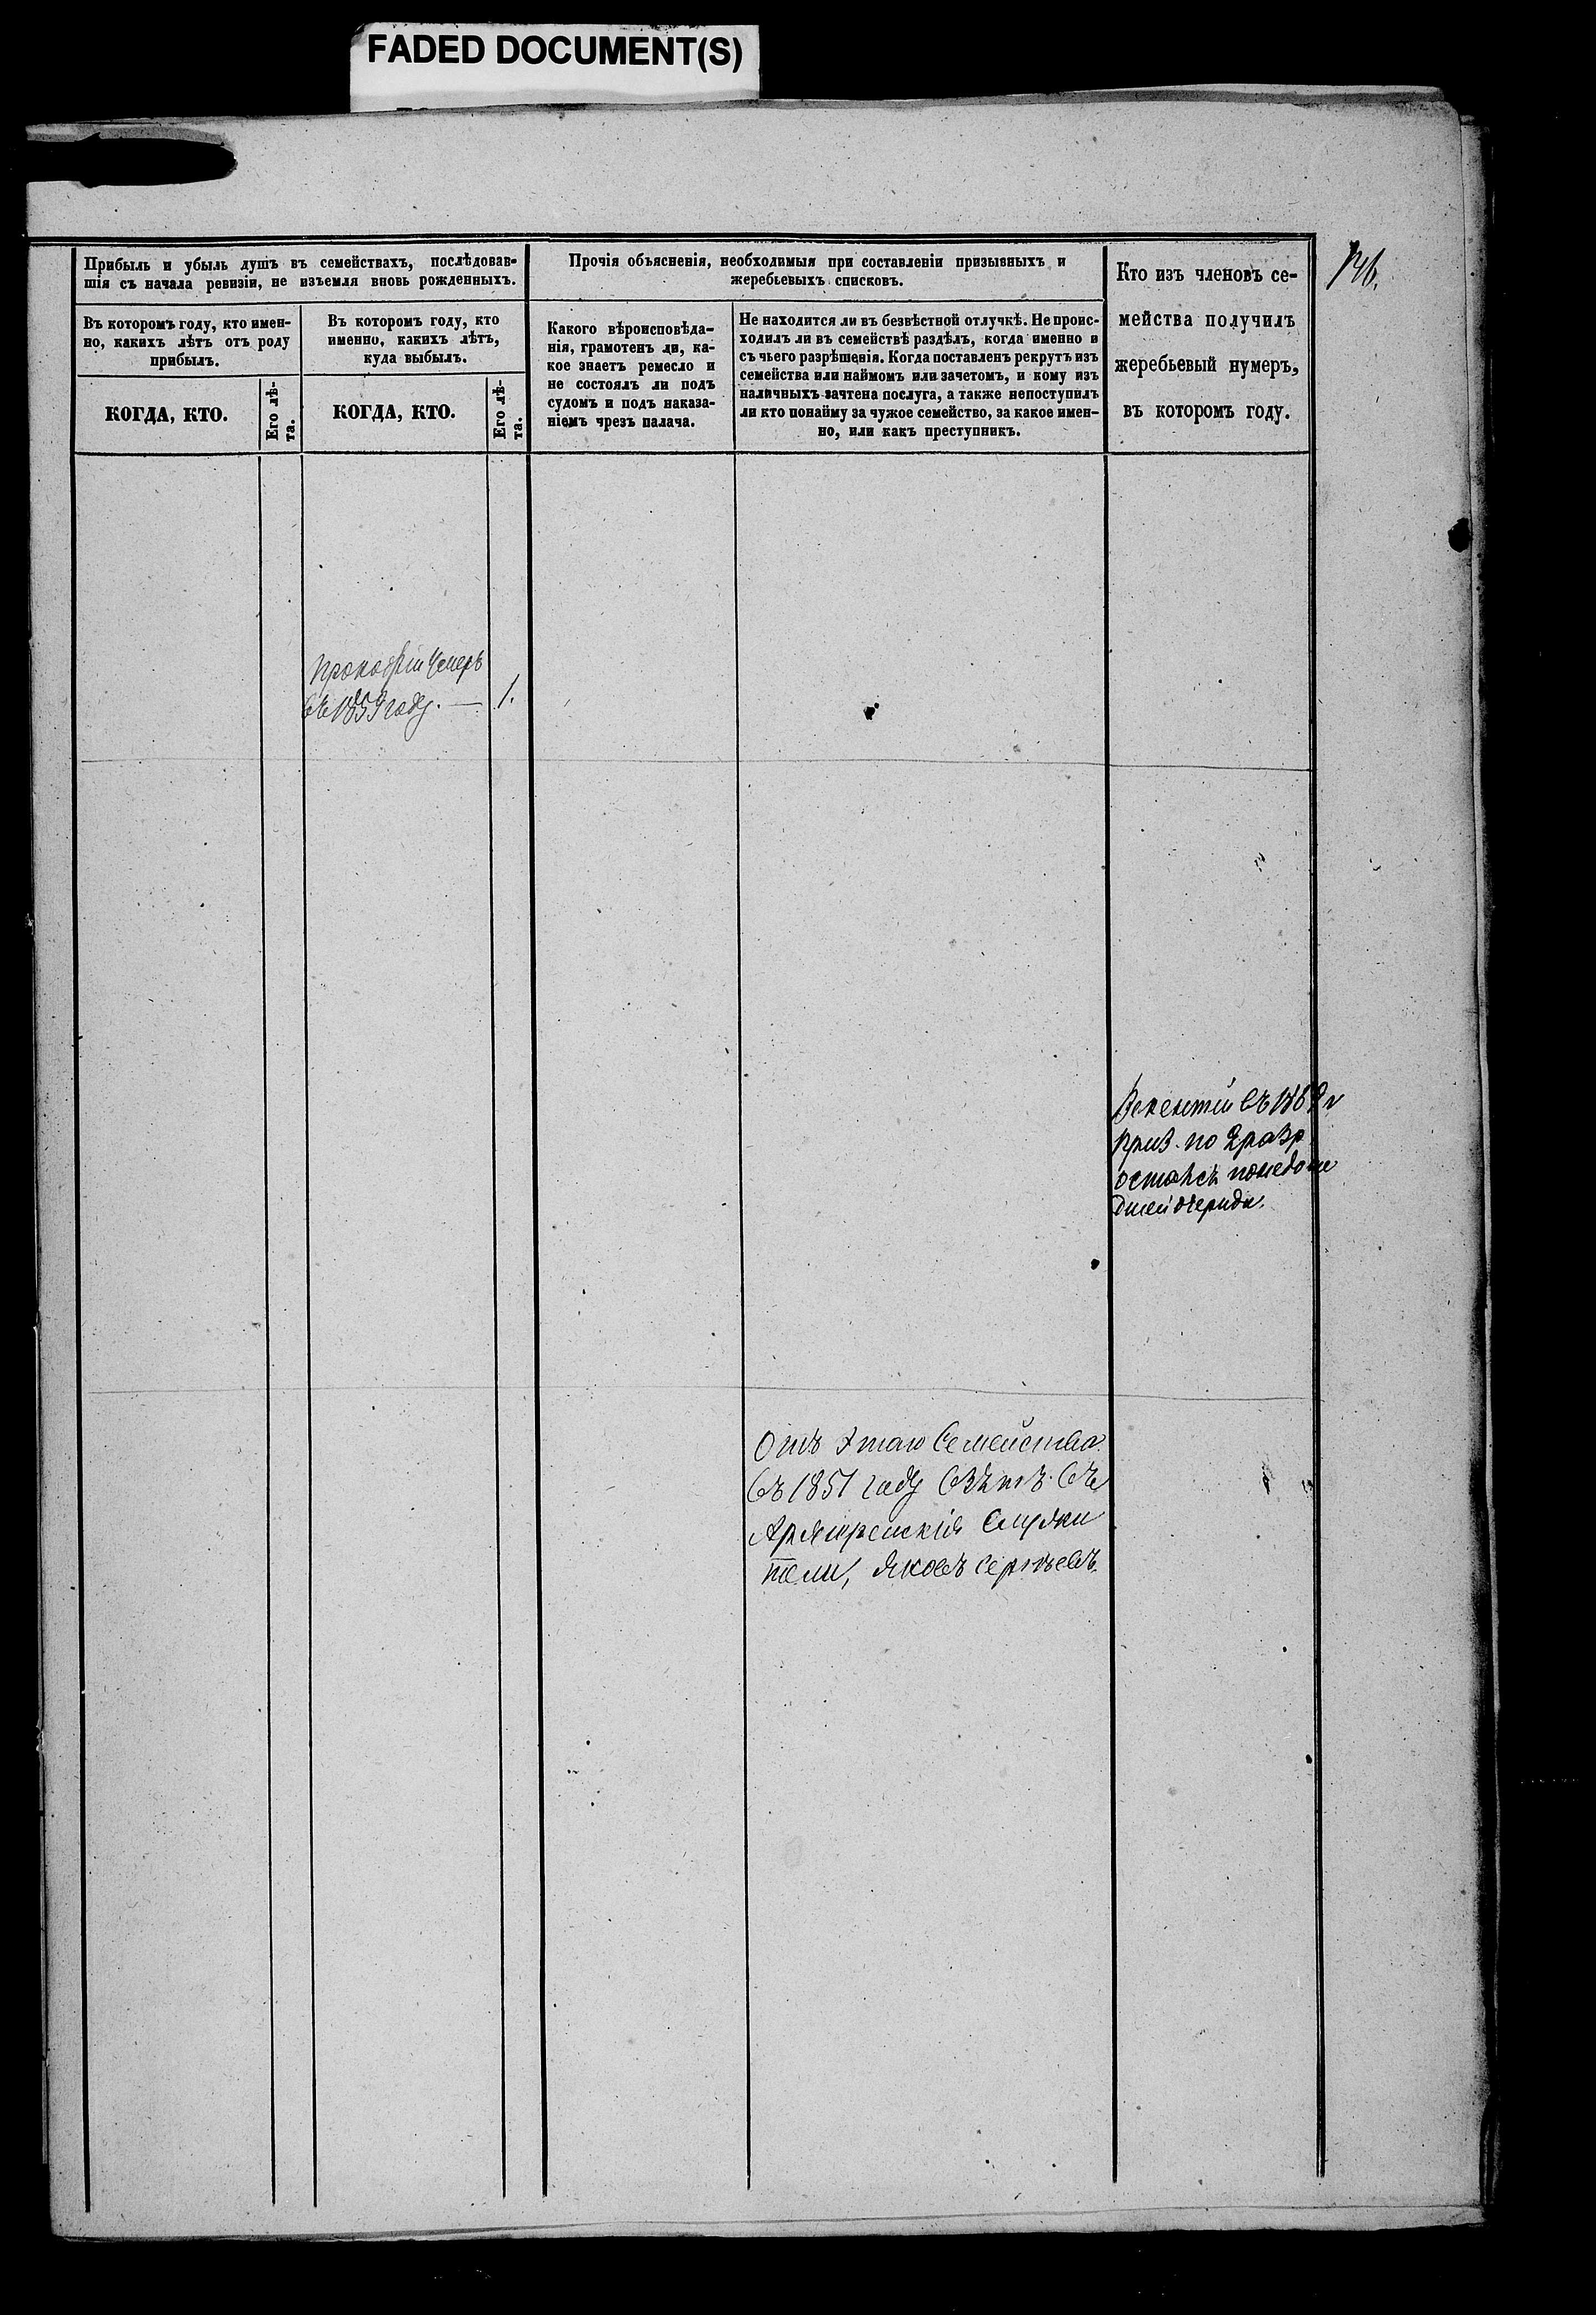 FADED DOCUMENT(S)
Прибыль и убыль душъ въ семействахъ, послѣдовав-
шія съ начала ревизіи, не изъемля вновь рожденныхъ.
Въ которомъ году, кто имен-
но, какихъ лѣтъ отъ роду
прибылъ.
КОГДА, КТО.
Его лѣ-
та.
Въ которомъ году, кто
именно, какихъ лѣтъ,
куда выбылъ.
КОГДА, КТО.
Его лѣ-
та.
Прочія объясненія, необходимыя при составленіи призывныхъ и
жеребьевыхъ списковъ.
Какого вѣроисповѣда-
нія, грамотенъ ли, ка-
кое знаетъ ремесло и
не состоялъ ли подъ
судомъ и подъ наказа-
ніемъ чрезъ палача.
Не находится ли въ безвѣстной отлучкѣ. Не проис-
ходилъ ли въ семействѣ раздѣлъ, когда именно и
съ чьего разрѣшенія. Когда поставленъ рекрутъ изъ
семейства или наймомъ или зачетомъ, и кому изъ
наличныхъ зачтена послуга, а также непоступилъ
ли кто понайму за чужое семейство, за какое имен-
но, или какъ преступникъ.
Кто изъ членовъ се-
мейства получилъ
жеребьевый нумеръ,
въ которомъ году.
Прокофій умеръ
въ 1859 году. —
1.
въ 1869 г
приз. по 2 разр
остался
очереди.
Отъ этаго Семейства
въ 1851 году взятъ въ
Яковъ Сергѣевъ.